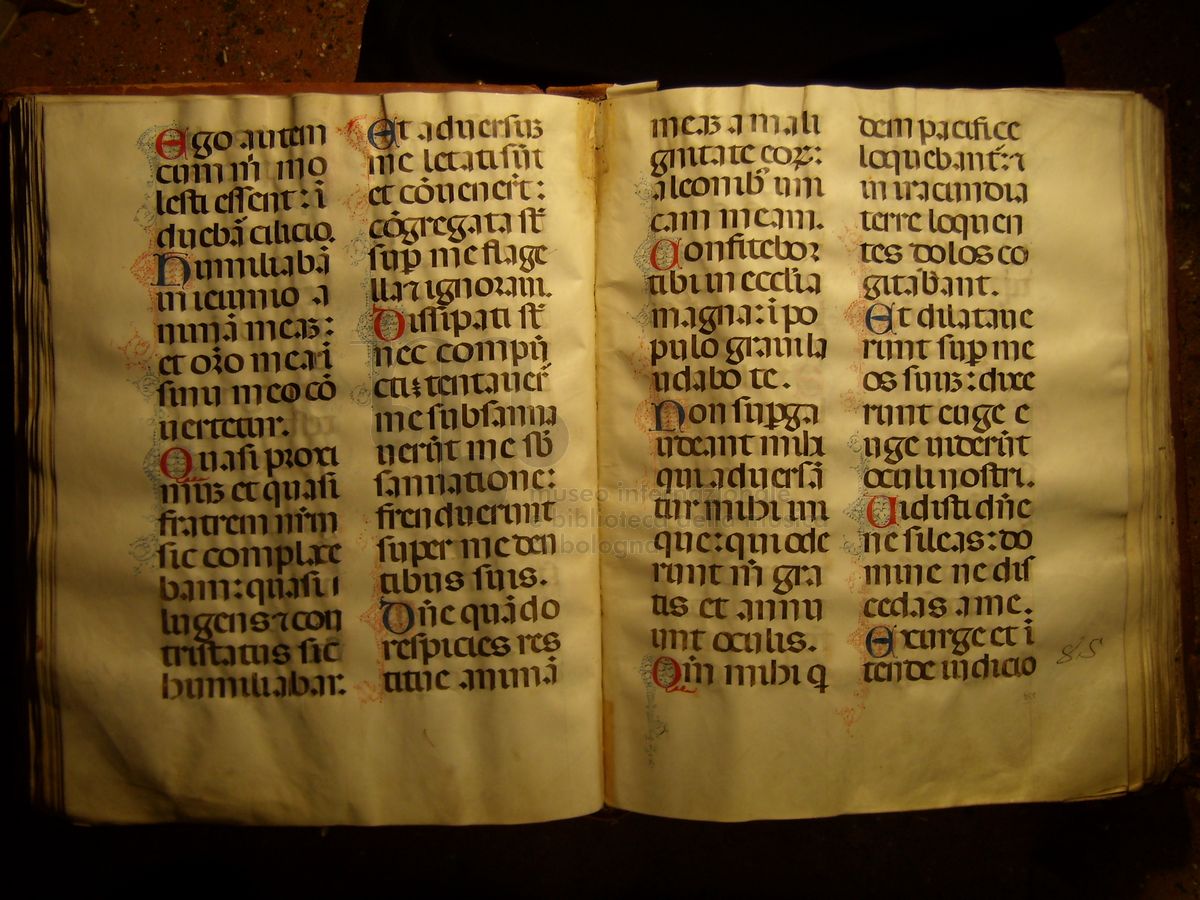 Ego autem
cum m̄ mo
lesti essent : ī
duebā cilicio.
Humiliabā
in ieiunio a
nimā meaz :
et or̄o mea ī
sinu meo cō
uertetur.
Quasi proxi
muz et quasi
fratrem nr̄m
sic complace
bam : quasi
lugens ⁊ con
tristatus sic
humiliabar.
Et aduersuz
me letati sūt
et cōuenerūt :
cōgregata st̄
sup̱ me flage
lla ⁊ ignoraui.
Dissipati st̄
nec compū
cti : tentauer̄
me subsanna
uerūt me sb̄
sannatione :
frenduerunt
super me den
tibus suis.
Dn̄e quādo
respicies res
titue animā
meaz a mali
gnitate eoꝝ :
a leonibꝰ uni
cam meam.
Confitebor
tibi in ecclīa
magna : ī po
pulo graui la
udabo te.
Non sup̱ga
udeant mihi
qui aduersā
tur mihi ini
que : qui ode
runt m̄ gra
tis et annu
unt oculis.
Qm̄ mihi q
dem pacifice
loquebant᷑ : ⁊
in iracundia
terre loquen
tes dolos co
gitabant.
Et dilataue
runt sup̱ me
os suuz : dixe
runt euge e
uge uiderūt
oculi nostri.
Uidisti dn̄e
ne sileas : do
mine ne dis
cedas a me.
Exurge et ī
tende iudicio
85
museo internazionale
e biblioteca della musica
bologna